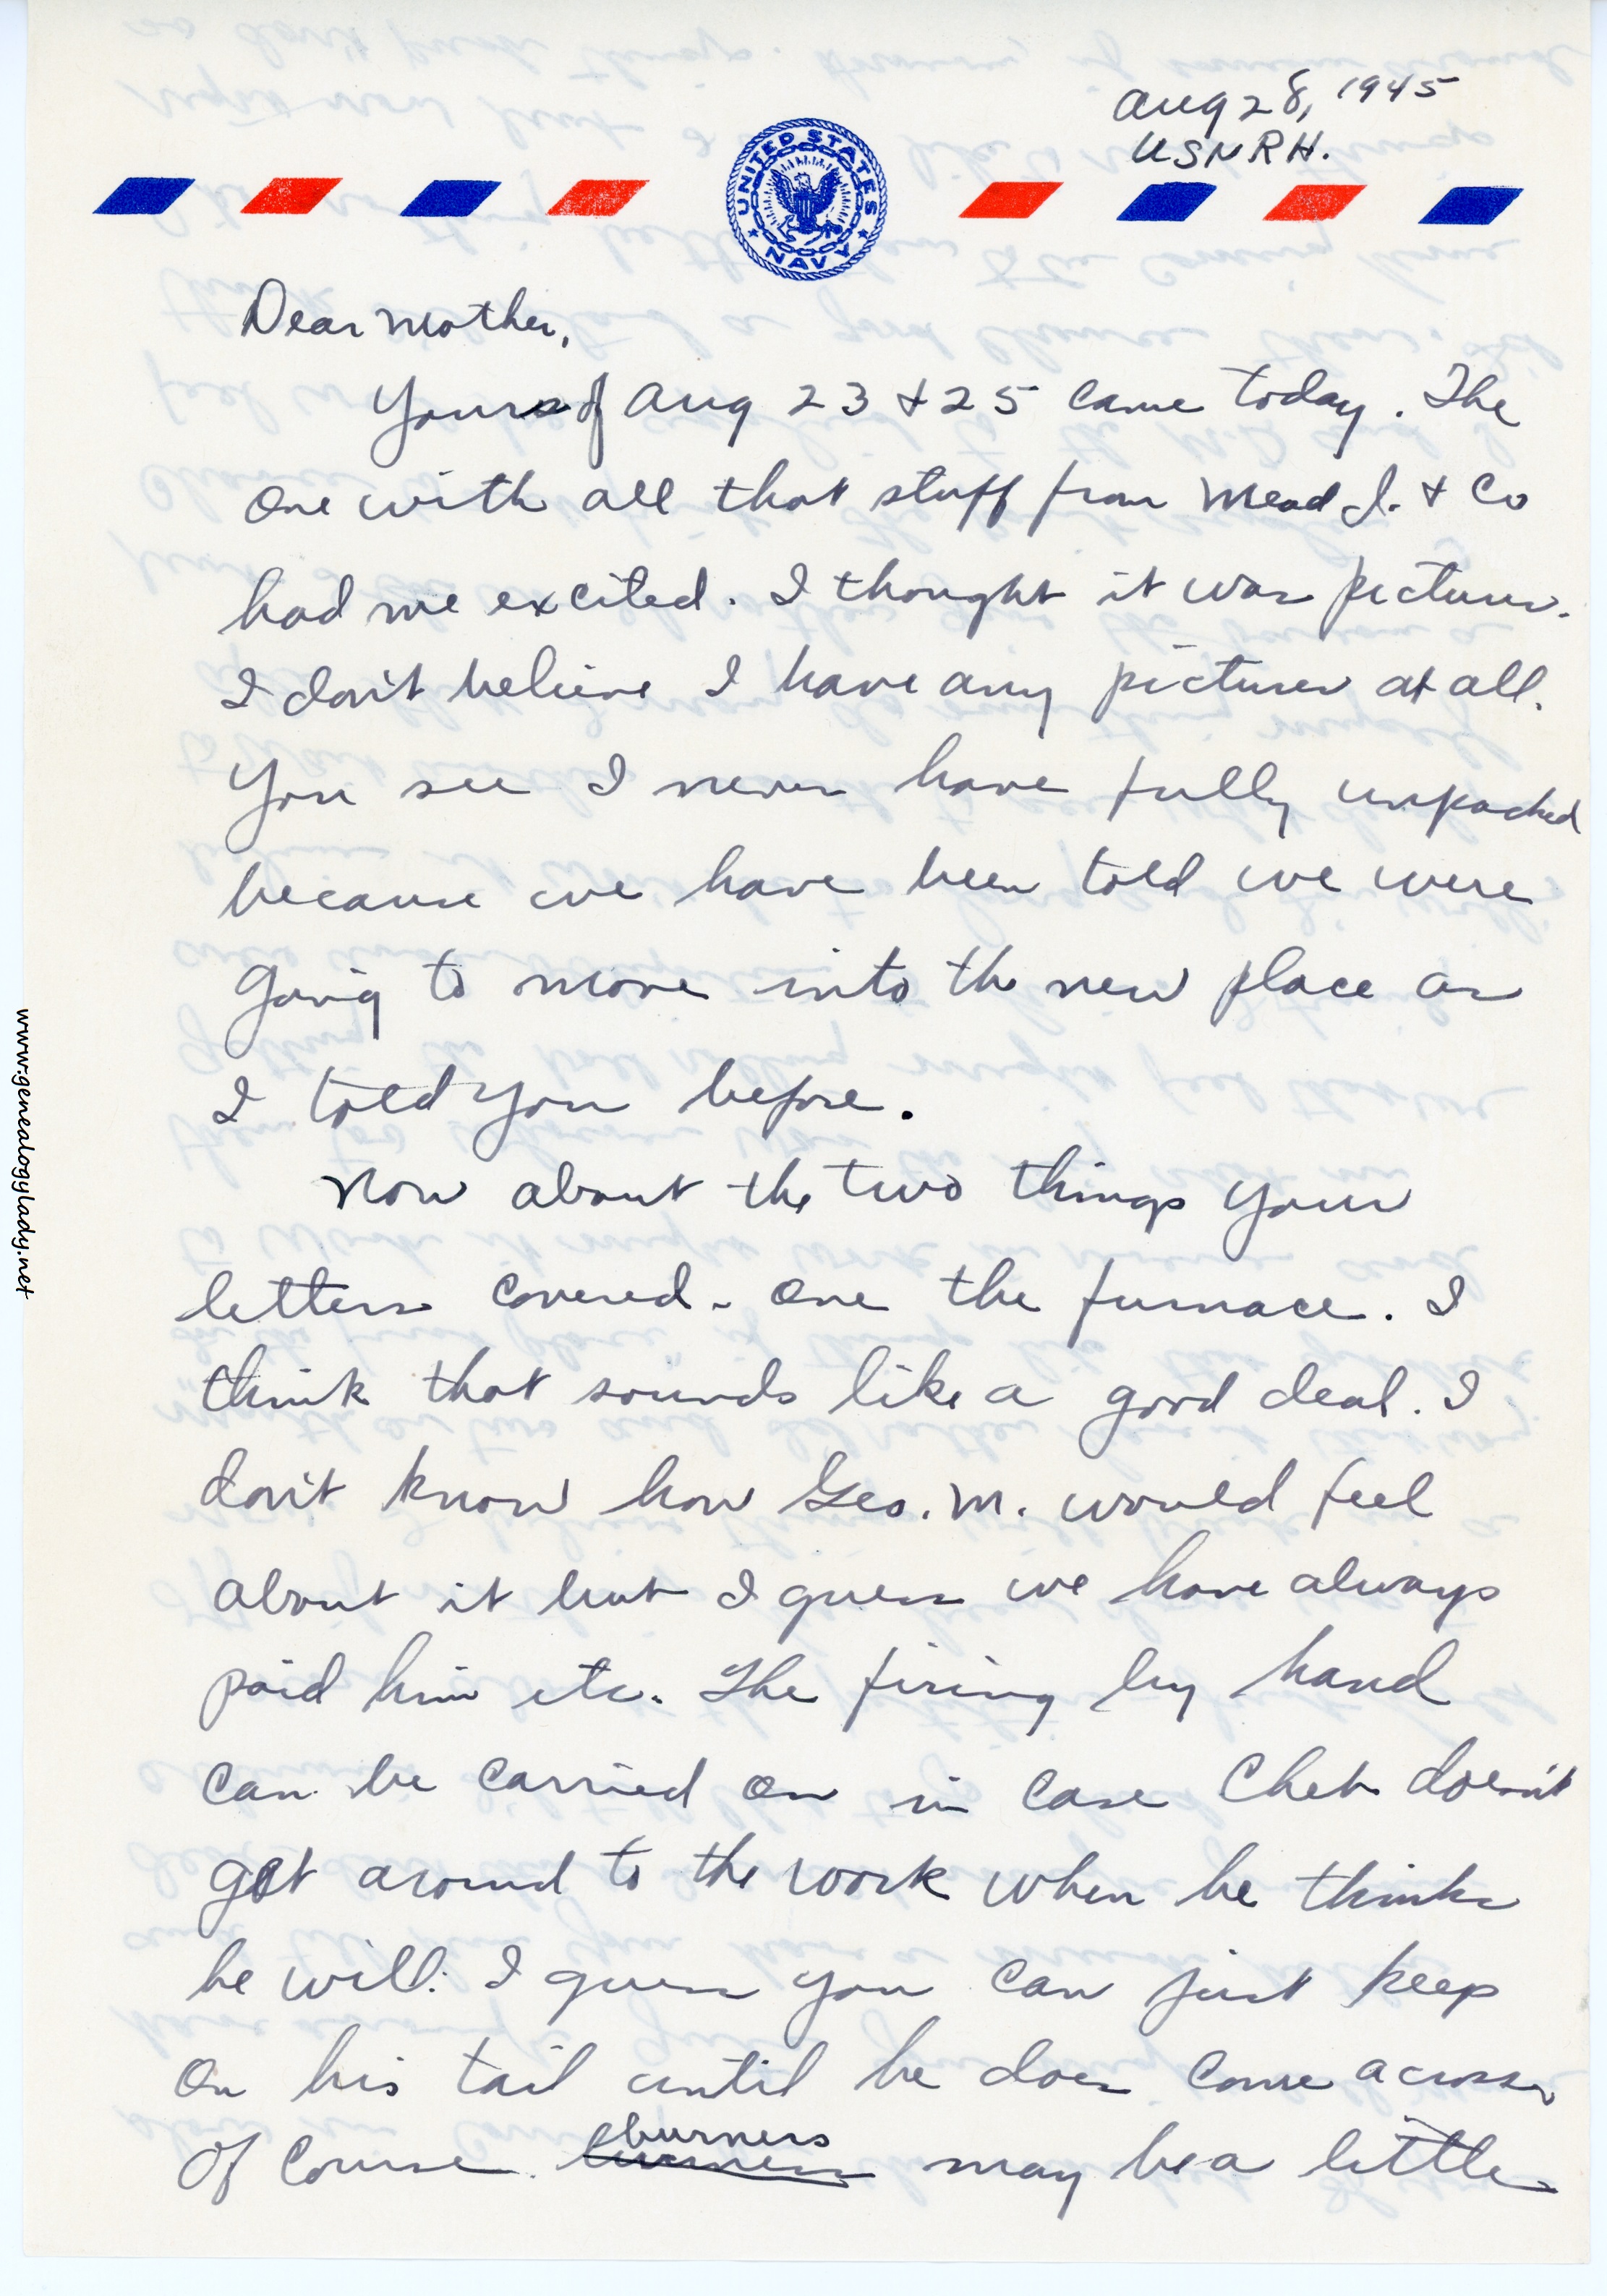 Aug 28, 1945
USNRH.
UNITED STATES NAVY
Dear Mother,
Yours of Aug 23 + 25 came today. The
one with all that stuff from Mead J. + Co
had me excited. I thought it was pictures.
I don't believe I have any pictures at all.
You see I never have fully unpacked
because we have been told we were
going to move into the new place as
I told you before.
Now about the two things your
letters covered - one the furnace. I
think that sounds like a good deal. I
don't know how Geo. M. would feel
about it but I guess we have always
paid him etc. The firing by hand
can be carried on in case Chet doesn't
get around to the work when he thinks
he will. I guess you can just keep
on his tail until he does come across.
Of course burners may be a little
www.genealogylady.net